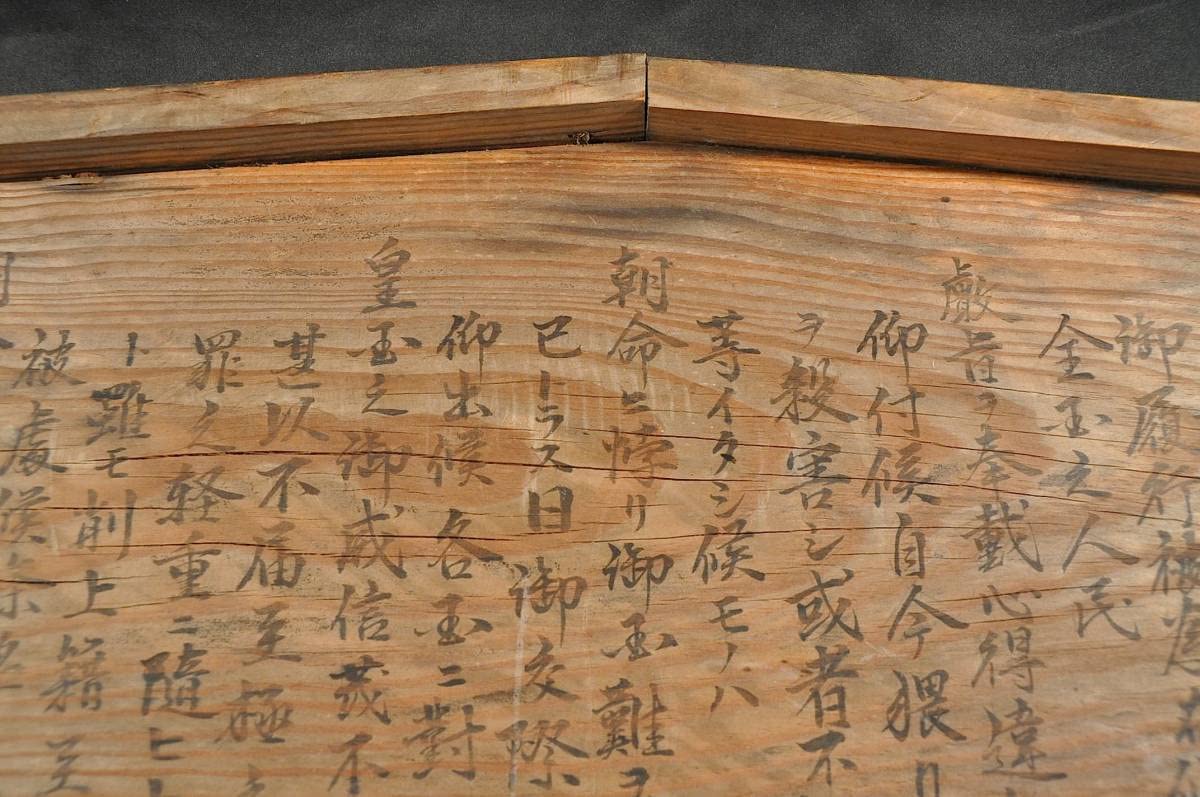 御履行被為
全国之人民
叡旨ヲ奉戴心得違
仰付候自今猥リ
ヲ殺害シ或者不
等イタシ候モノハ
朝命ニ悖リ御国難ヲ
已ナラス曰御交際
仰出候各国ニ對
皇国之御威信茂不
甚以不届至極之
罪之軽重ニ隨ヒ
ト雖モ削士籍至
被處候条